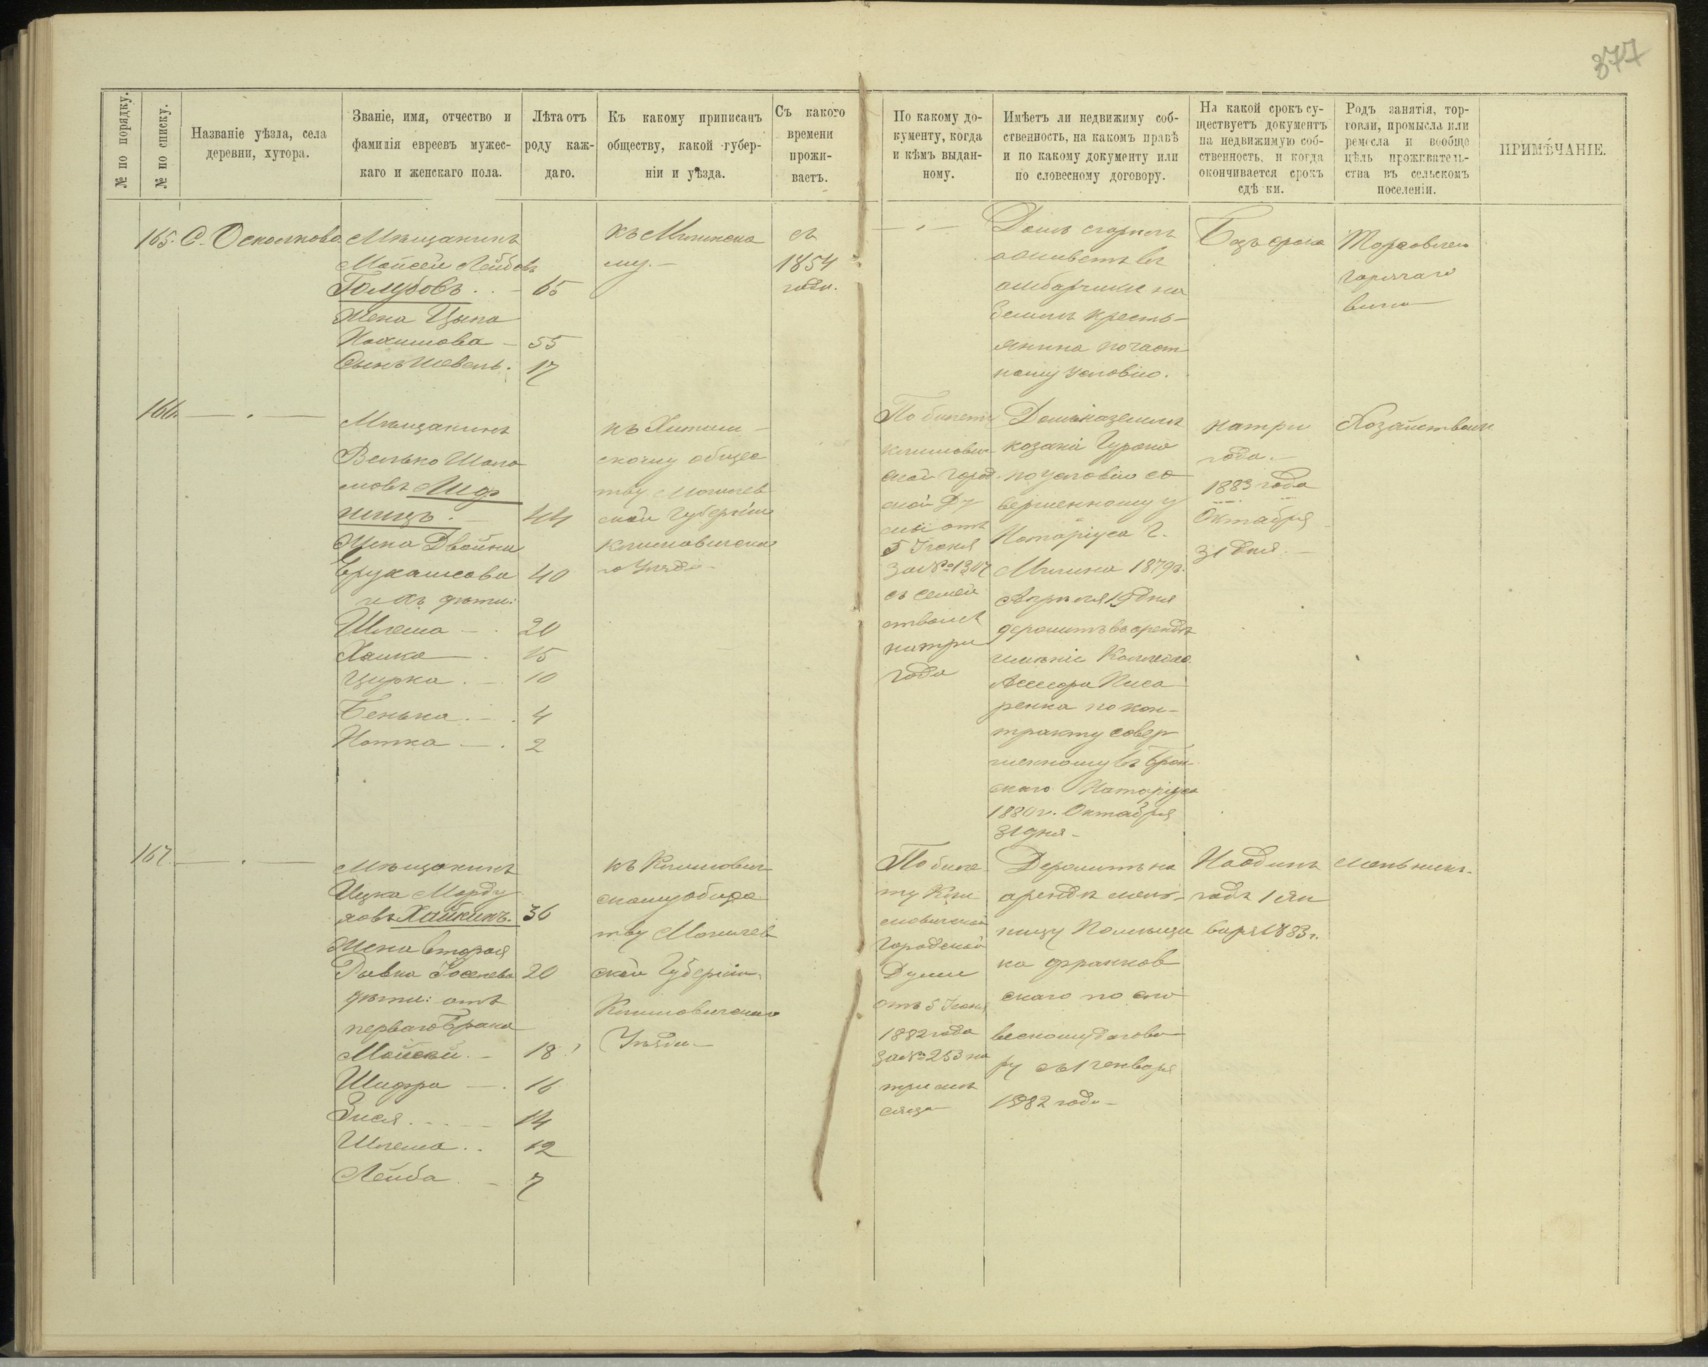 377
№ по порядку.
№ по списку.
Названіе уѣзда, села
деревни, хутора.
Званіе, имя, отчество и
фамилія евреевъ мужес-
каго и женскаго пола.
Лѣта отъ
роду каж-
даго.
Къ какому приписанъ
обществу, какой губер-
ніи и уѣзда.
Съ какого
времени
прожи-
ваетъ.
По какому до-
кументу, когда
и кѣмъ выдан-
ному.
Имѣетъ ли недвижиму соб-
ственность, на какомъ правѣ
и по какому документу или
по словесному договору.
На какой срокъ су-
ществуетъ документъ
на недвижимую соб-
ственность, и когда
окончивается срокъ
сдѣ ки.
Родъ занятія, тор-
говли, промысла или
ремесла и вообще
цѣль проживатель-
ства въ сельскомъ
поселеніи.
ПРИМѢЧАНІЕ.
165. С. Осколково
Мѣщанинъ
Мойсей Лейбовъ
Голубовъ . . — 65
Жена Цыпа
— 55
Сынъ Шевель . 17
къ Мглинско
му. —
съ
1854
года.
— „ —
Домъ сгорѣлъ
а живетъ въ
амбарчике на
земли кресть-
янина по част
ному условію.
Безъ срока
Торговлею
горячаго
вина —
166. — „ —
Мѣщанинъ
Велько Шоло
мовъ Лиф
шицъ . — 44
Жена Двойна
40
и ихъ дѣти:
Шлема — . 20
Хашка — . 15
Цирка . — 10
Бенька . — . 4
Нотка — . 2
скому общес
тву Могилев
ской Губерніи
Климовичска
го Уѣзда —
По билету
Климович
ской Город
ской Ду
мы отъ
5 Іюня
за № 1307
съ семей
ствомъ
на три
года
Домъ на землѣ
козака
по условію со
вершенному у
Нотаріуса Г.
Мглина 1879 г.
Апрѣля 19 дня
держитъ въ арендѣ
имѣніе
Ассесора Писа
ренка по кон-
тракту совер
шенному
скаго Нотаріуса
1880 г. Октября
31 дня —
на три
года. —
1883 года
Октября
31 дня —
167. — „ —
Мѣщанинъ
Ицка Морду
ховъ Хайкинъ. 36
Жена вторая
Ривка Іоселева 20
дѣти: отъ
перваго брака
Мойсей . — 18
Шифра — . 16
14
Шлема . . 12
Лейба . — 7
къ Климович
скому общес
тву Могилев
ской Губерніи
Климовичскаго
Уѣзда —
По биле
ту Кли
мовичской
Городской
Думы
отъ 5 Іюня
1882 года
за № 253 на
три мѣ
сяца —
Держитъ на
арендѣ мель-
ницу Помѣщи
ка Франков
скаго по сло
весному догово
ру съ 1 генваря
1882 года —
На одинъ
годъ 1 Ян
варя 1883 г.
Мельникъ.